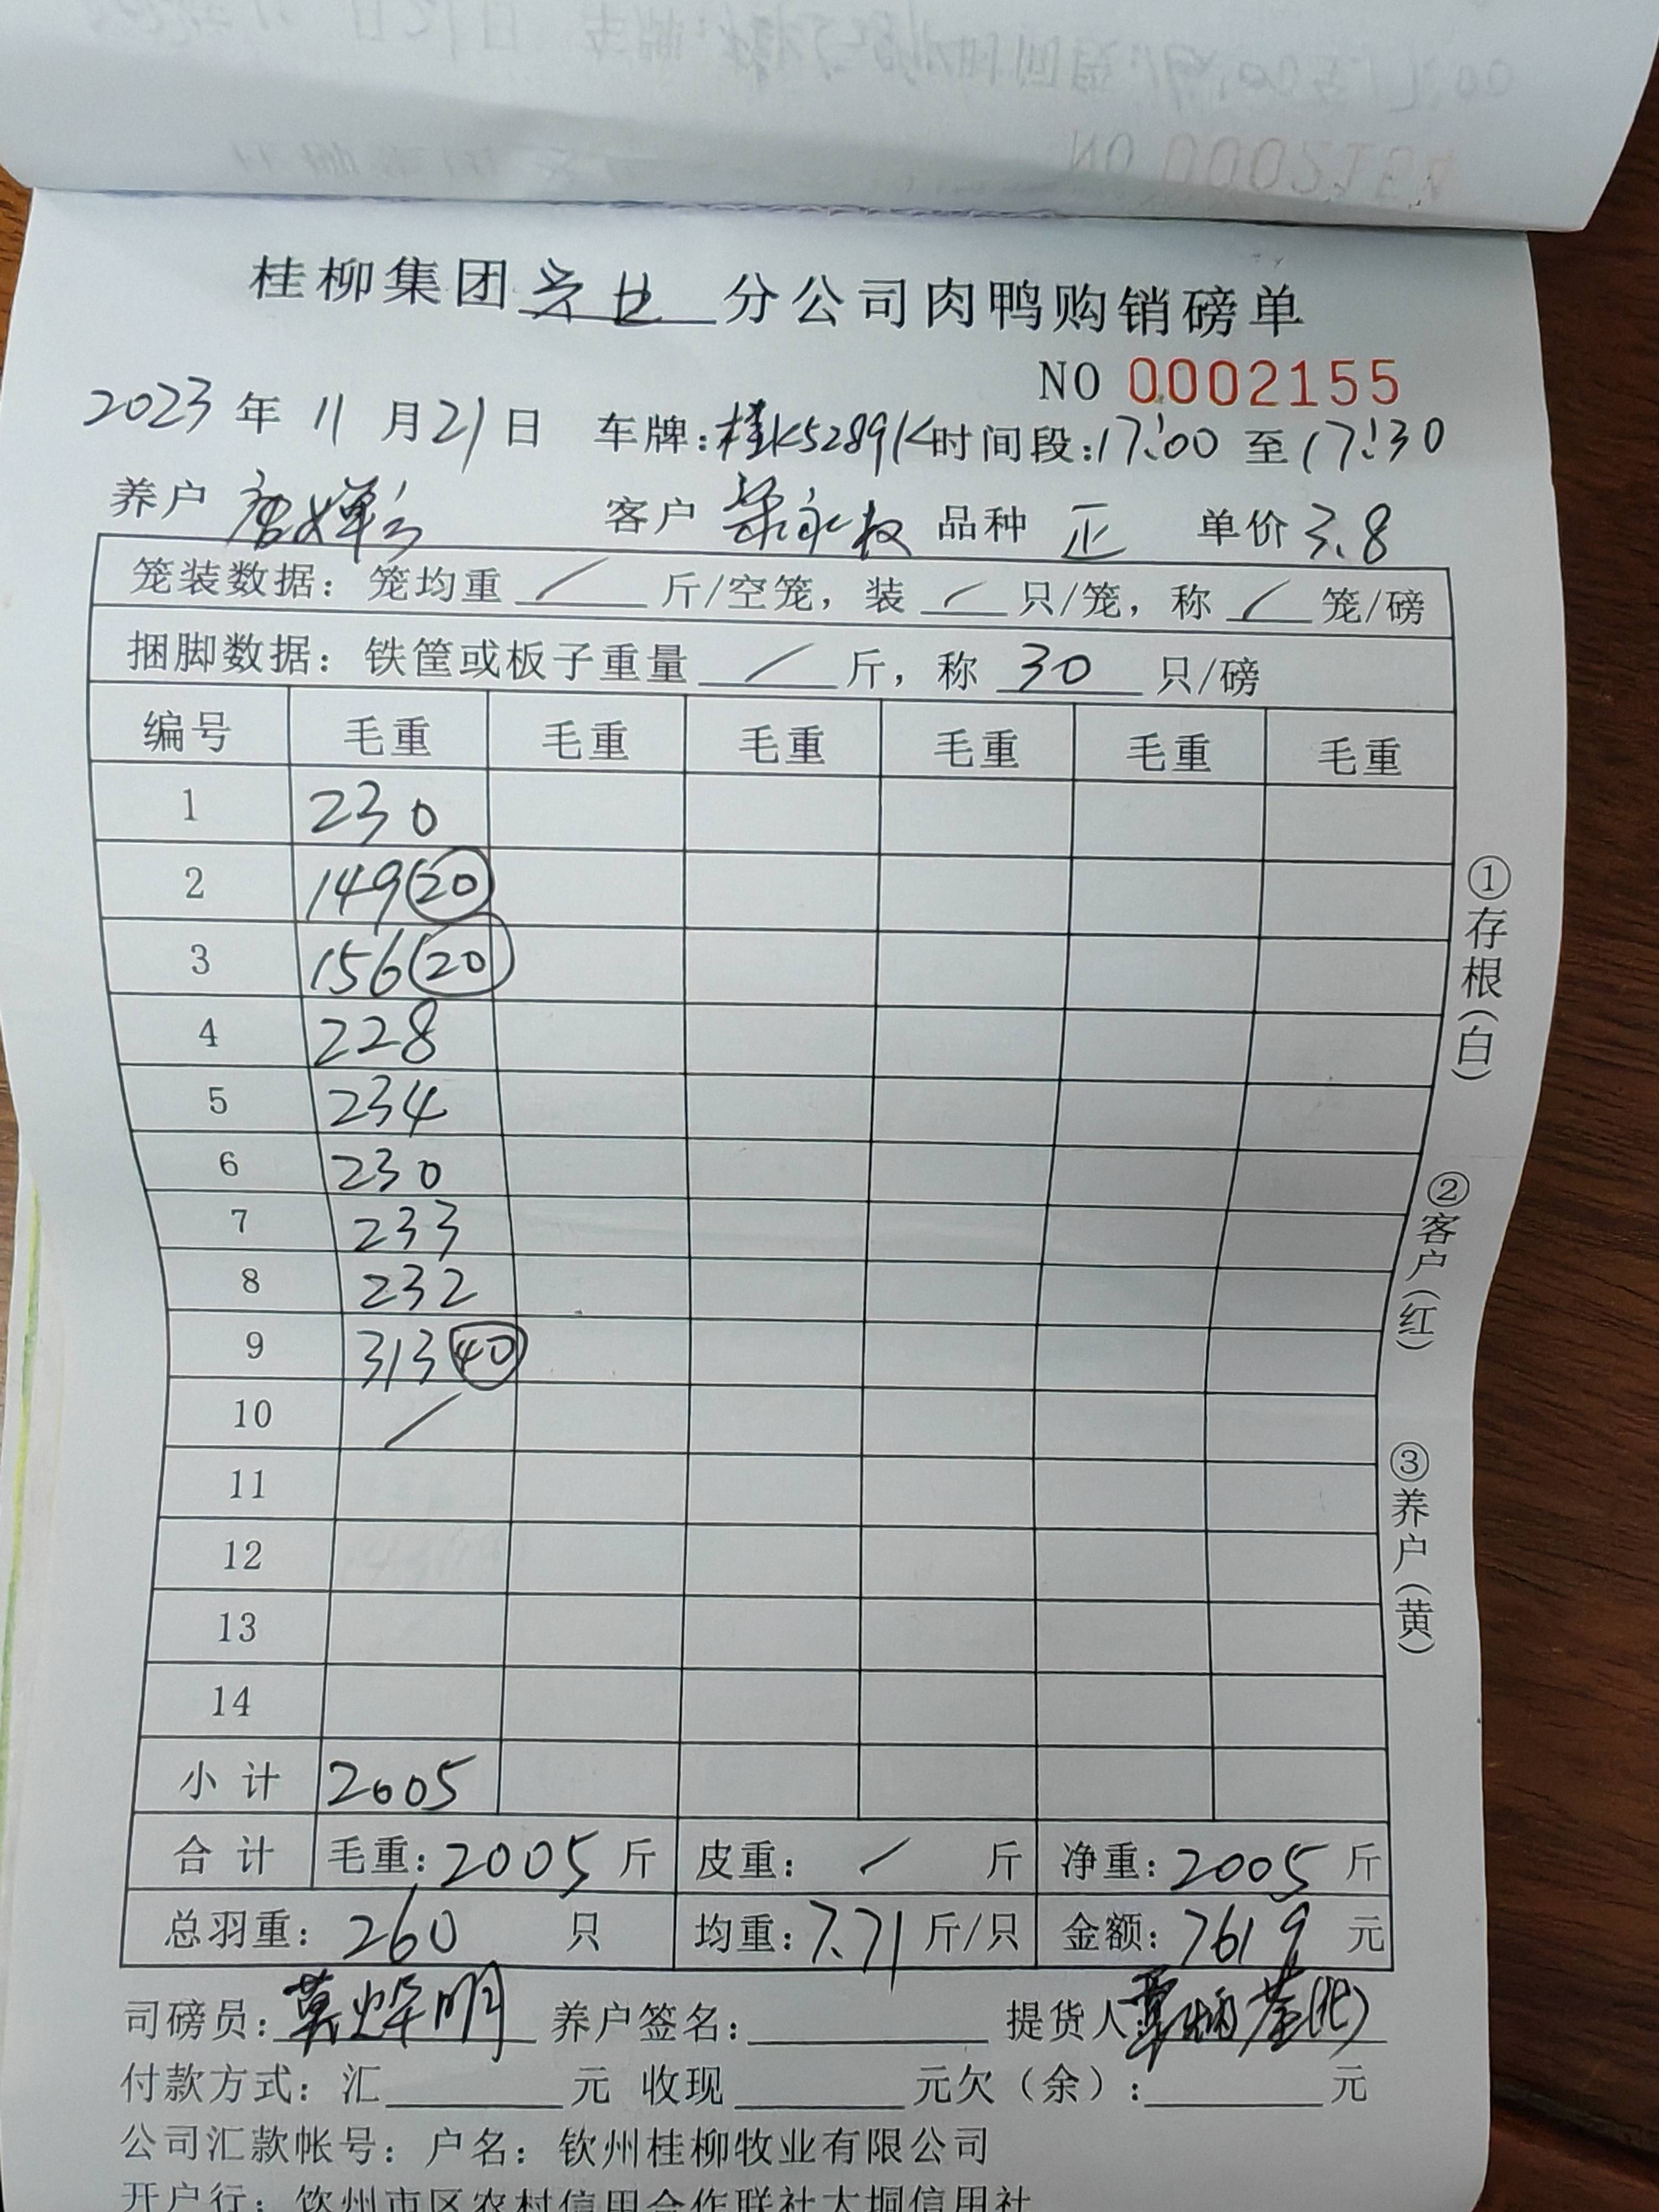 NO 0002154
桂柳集团 分公司肉鸭购销磅单
NO 0002155
2023 年 11 月 21 日 车牌:桂K5289K 时间段:17:00 至 17:30
养户 唐婵 客户 梁永权 品种 正 单价 3.8
笼装数据: 笼均重 / 斤/空笼, 装 / 只/笼, 称 / 笼/磅
捆脚数据: 铁筐或板子重量 / 斤, 称 30 只/磅
编号 毛重 毛重 毛重 毛重 毛重 毛重
1 230
2 149 (20)
3 156 (20)
4 228
5 234
6 230
7 233
8 232
9 313 (40)
10 /
11
12
13
14
小计 2005
合计 毛重: 2005 斤 皮重: / 斤 净重: 2005 斤
总羽重: 260 只 均重: 7.71 斤/只 金额: 7619 元
司磅员: 莫烨明 养户签名: 提货人: 覃炳
付款方式: 汇 元 收现 元欠(余): 元
公司汇款帐号: 户名: 钦州桂柳牧业有限公司
开户行: 钦州市区农村信用合作联社大垌信用社
①存根(白)
②客户(红)
③养户(黄)